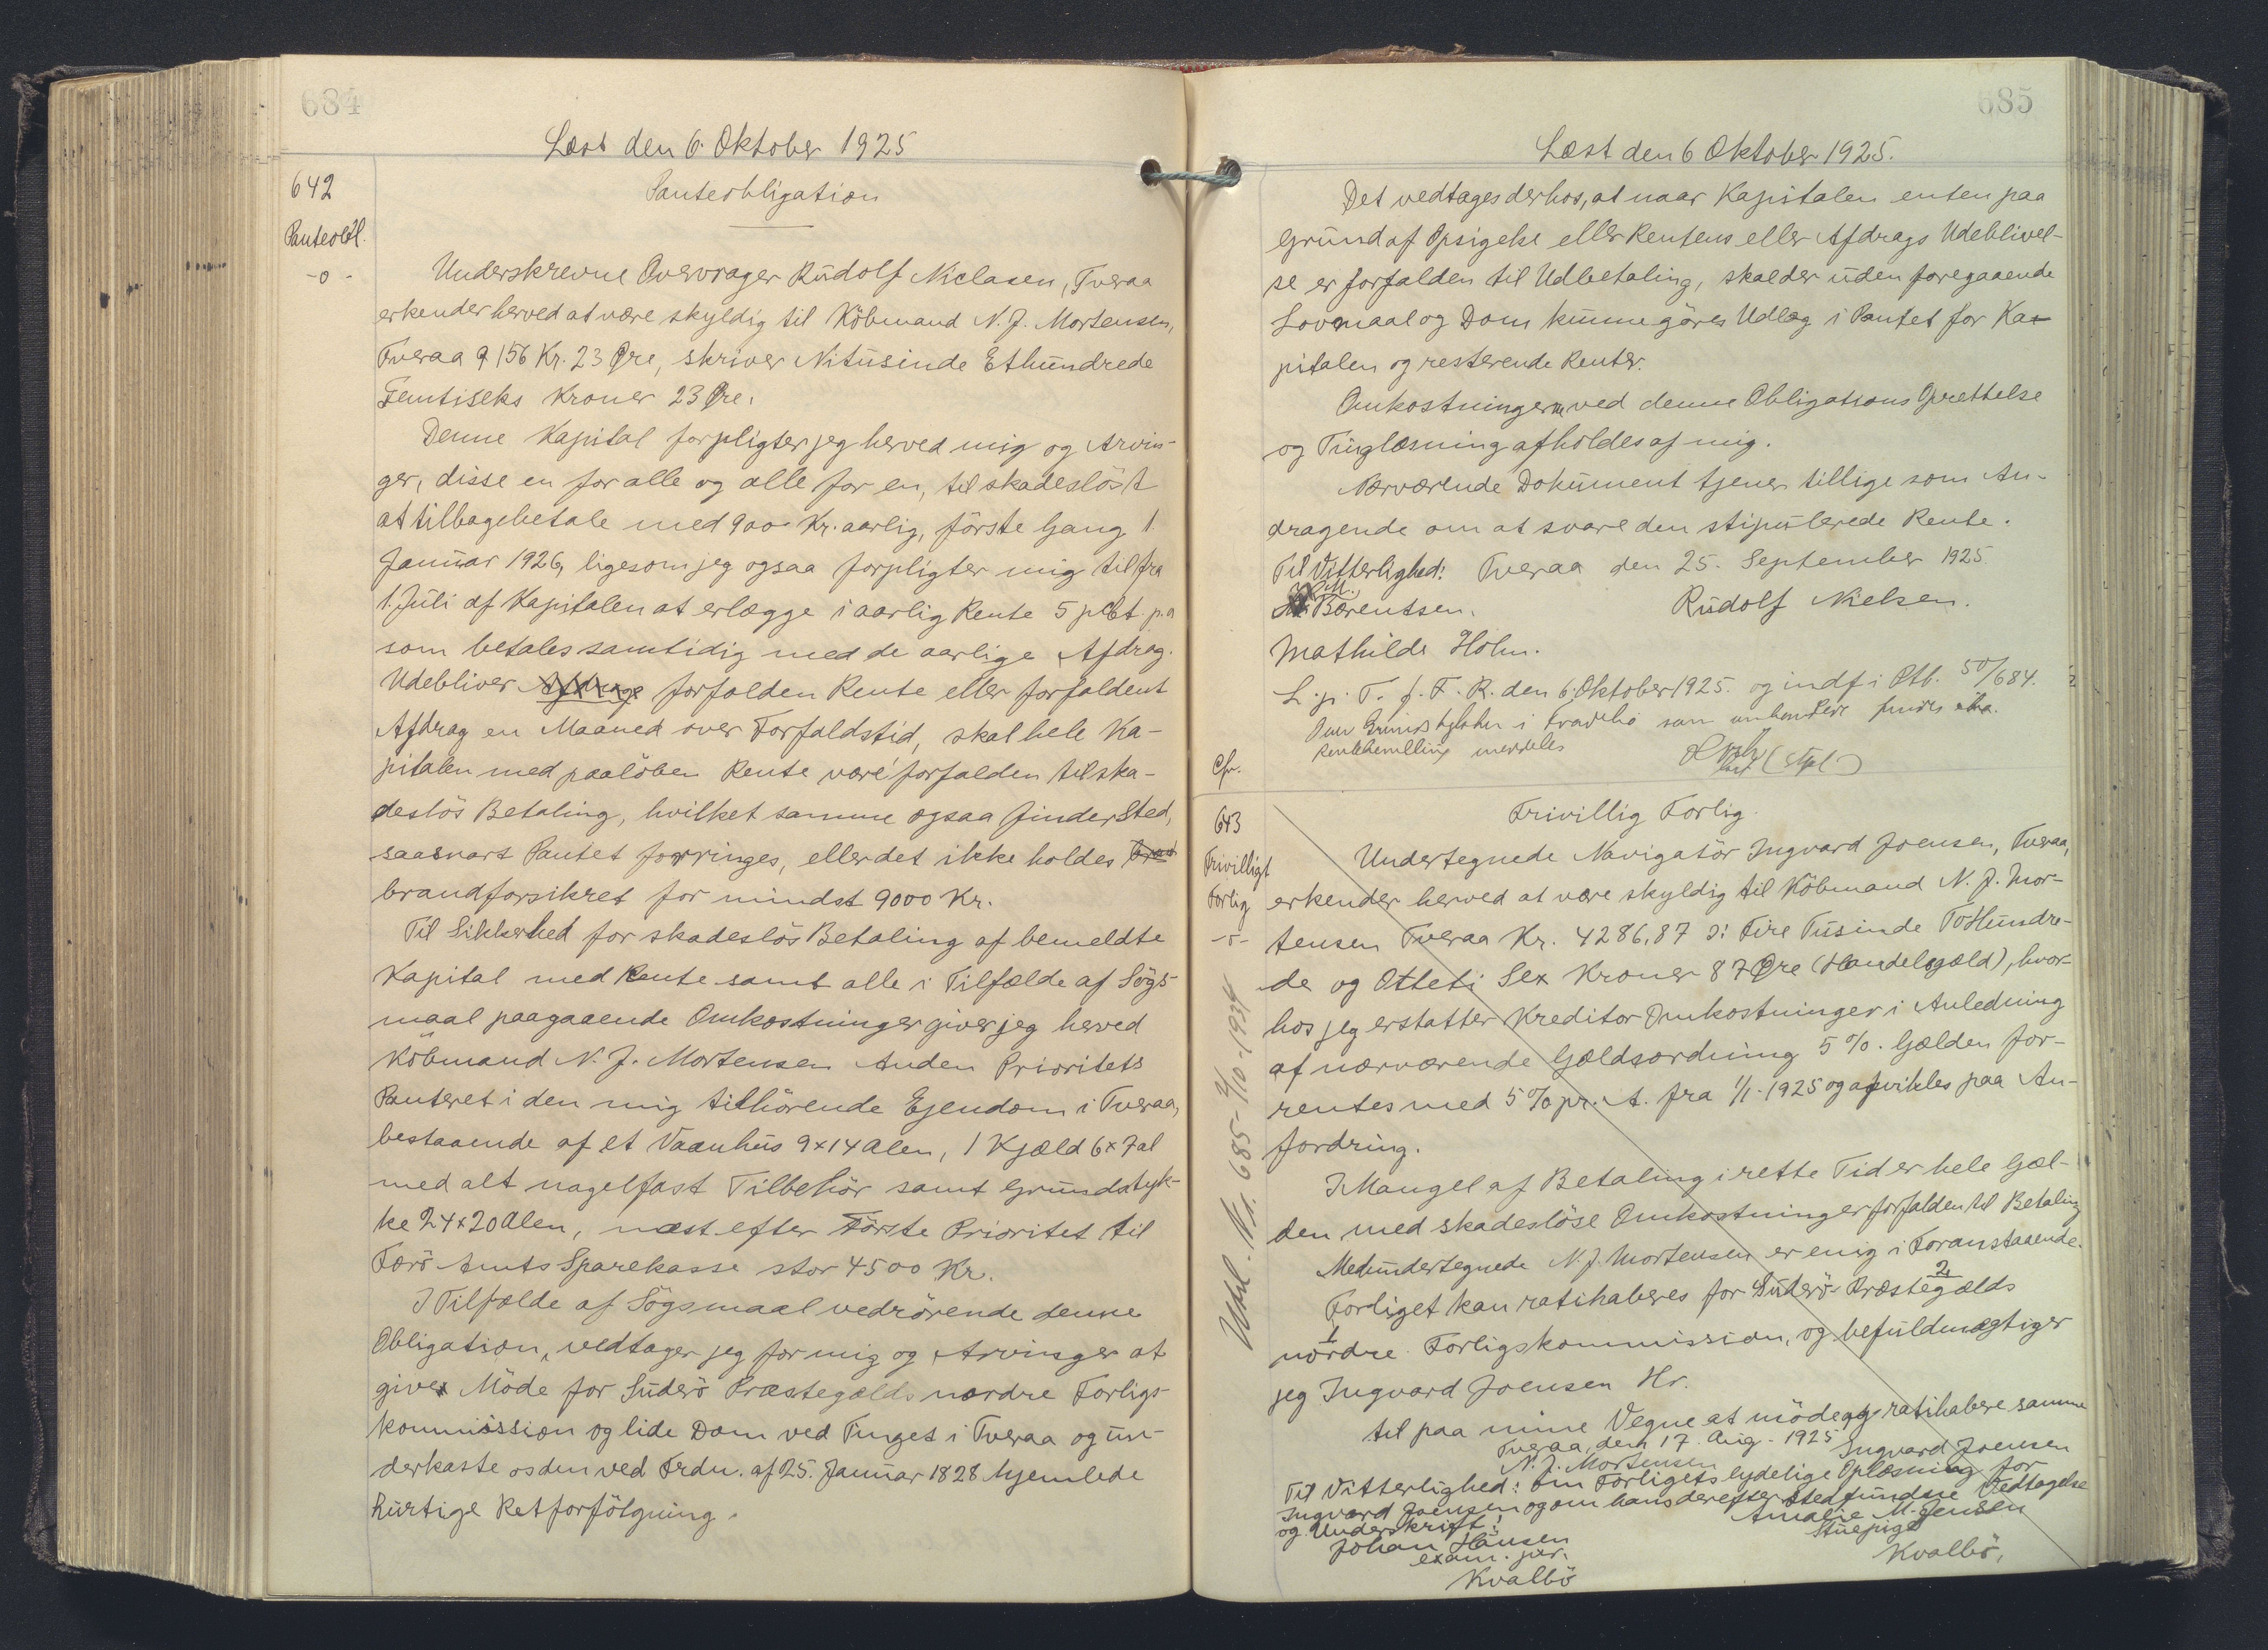 684
Læst den 6. Oktober 1925
642
Panteobl.
-o-
Panteobligation
Underskrevne Overvrager Rudolf Niclasen, Tveraa
erkender herved at være skyldig til Köbmand N. J. Mortensen,
Tveraa 9156 Kr. 23 Øre, skriver Nitusinde Ethundrede
Femtiseks Kroner 23 Øre.
Denne Kapital forpligter jeg herved mig og Arvin-
ger, disse en for alle og alle for en, til skadeslöst
at tilbagebetale med 900 Kr. aarlig, förste Gang 1.
Januar 1926, ligesom jeg ogsaa forpligter mig til fra
1. Juli af Kapitalen at erlægge i aarlig Rente 5 pCt. p.a
som betales samtidig med de aarlige Afdrag.
Udebliver Afdrage forfalden Rente eller forfaldent
Afdrag en Maaned over Forfaldstid, skal hele Ka-
pitalen med paalöben Rente være forfalden til ska-
deslös Betaling, hvilket samme ogsaa finder Sted,
saasnart Pantet forringes, eller det ikke holdes
brandforsikret for mindst 9000 Kr.
Til Sikkerhed for skadeslös Betaling af bemeldte
Kapital med Rente samt alle i Tilfælde af Sögs-
maal paagaaende Omkostninger giver jeg herved
Köbmand N. J. Mortensen Anden Prioritets
Panteret i den mig tilhörende Ejendom i Tveraa,
bestaaende af et Vaanhus 9x14 Alen, 1 Kjæld 6x7 al
med alt nagelfast Tilbehör samt Grundstyk-
ke 24x20 Alen, næst efter Förste Prioritet til
Færö Amts Sparekasse stor 4500 Kr.
I Tilfælde af Sögsmaal vedrörende denne
Obligation, vedtager jeg for mig og Arvinger at
give Möde for Suderö Præstegælds nordre Forligs-
kommission og lide Dom ved Tinget i Tveraa og un-
derkaste os den ved Frdn. af 25. Januar 1828 hjemlede
hurtige Retforfölgning.
685
Læst den 6 Oktober 1925.
Det vedtages derhos, at naar Kapitalen enten paa
Grund af Opsigelse eller Rentens eller Afdrags Udeblivel-
se er forfalden til Udbetaling, skal der uden foregaaende
Lovmaal og Dom kunne göres Udlæg i Pantet for Ka-
pitalen og resterende Renter.
Omkostningerne ved denne Obligations Oprettelse
og Tinglæsning afholdes af mig.
Nærværende Dokument tjener tillige som An-
dragende om at svare den stipulerede Rente.
Til Vitterlighed: Tveraa den 25. September 1925
Bærentsen. Rudolf Nielsen.
Mathilde Holm.
L. p. T. f. F. R. den 6. Oktober 1925. og indf i Ptb. 50/684.
Rentebevilling meddeles
(stpl)
Cfr.
643
Frivilligt
Forlig
-o-
Frivillig Forlig.
Undertegnede Navigatör Ingvard Joensen, Tveraa,
erkender herved at være skyldig til Köbmand N. J. Mor-
tensen Tveraa Kr. 4286,87 ɔ: Fire Tusinde To Hundre-
de og Otteti Sex Kroner 87 Øre (Handelsgæld), hvor-
hos jeg erstatter Kreditor Omkostninger i Anledning
af nærværende Gældsordning 5%. Gælden for-
rentes med 5% pr. A. fra 1/1-1925 og afvikles paa An-
fordring.
I Mangel af Betaling i rette Tid er hele Gæl-
den med skadeslöse Omkostninger forfalden til Betaling
Medundertegnede N. J. Mortensen er enig i Foranstaaende.
Forliget kan ratihaberes for Suderö Præstegælds
2
1
nordre Forligskommission, og befuldmægtiger
jeg Ingvard Joensen Hr.
til paa mine Vegne at möde og ratihabere samme
Tveraa, den 17. Aug. 1925
N. J. Mortensen Ingvard Joensen
Til Vitterlighed: om Forligets lydelige Oplæsning for
Ingvard Joensen og om hans derefter stedfundne Vedtagelse
og Underskrift:
Johan Hansen
exam. jur.
Kvalbö
Amalie M. Jensen
Stuepige
Kvalbö.
Udsl. Nr. 685 - 2/10-1934